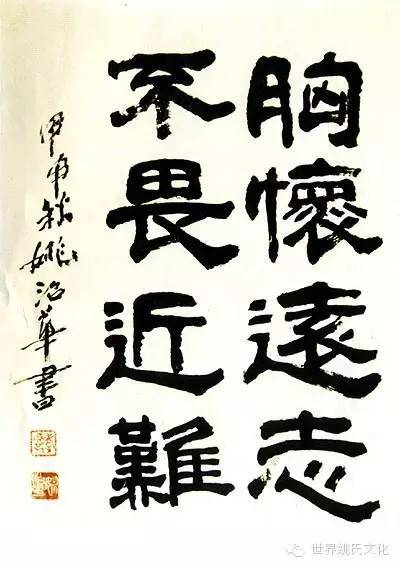 胸懷遠志
不畏近難
甲申秋姚治華書
世界姚氏文化